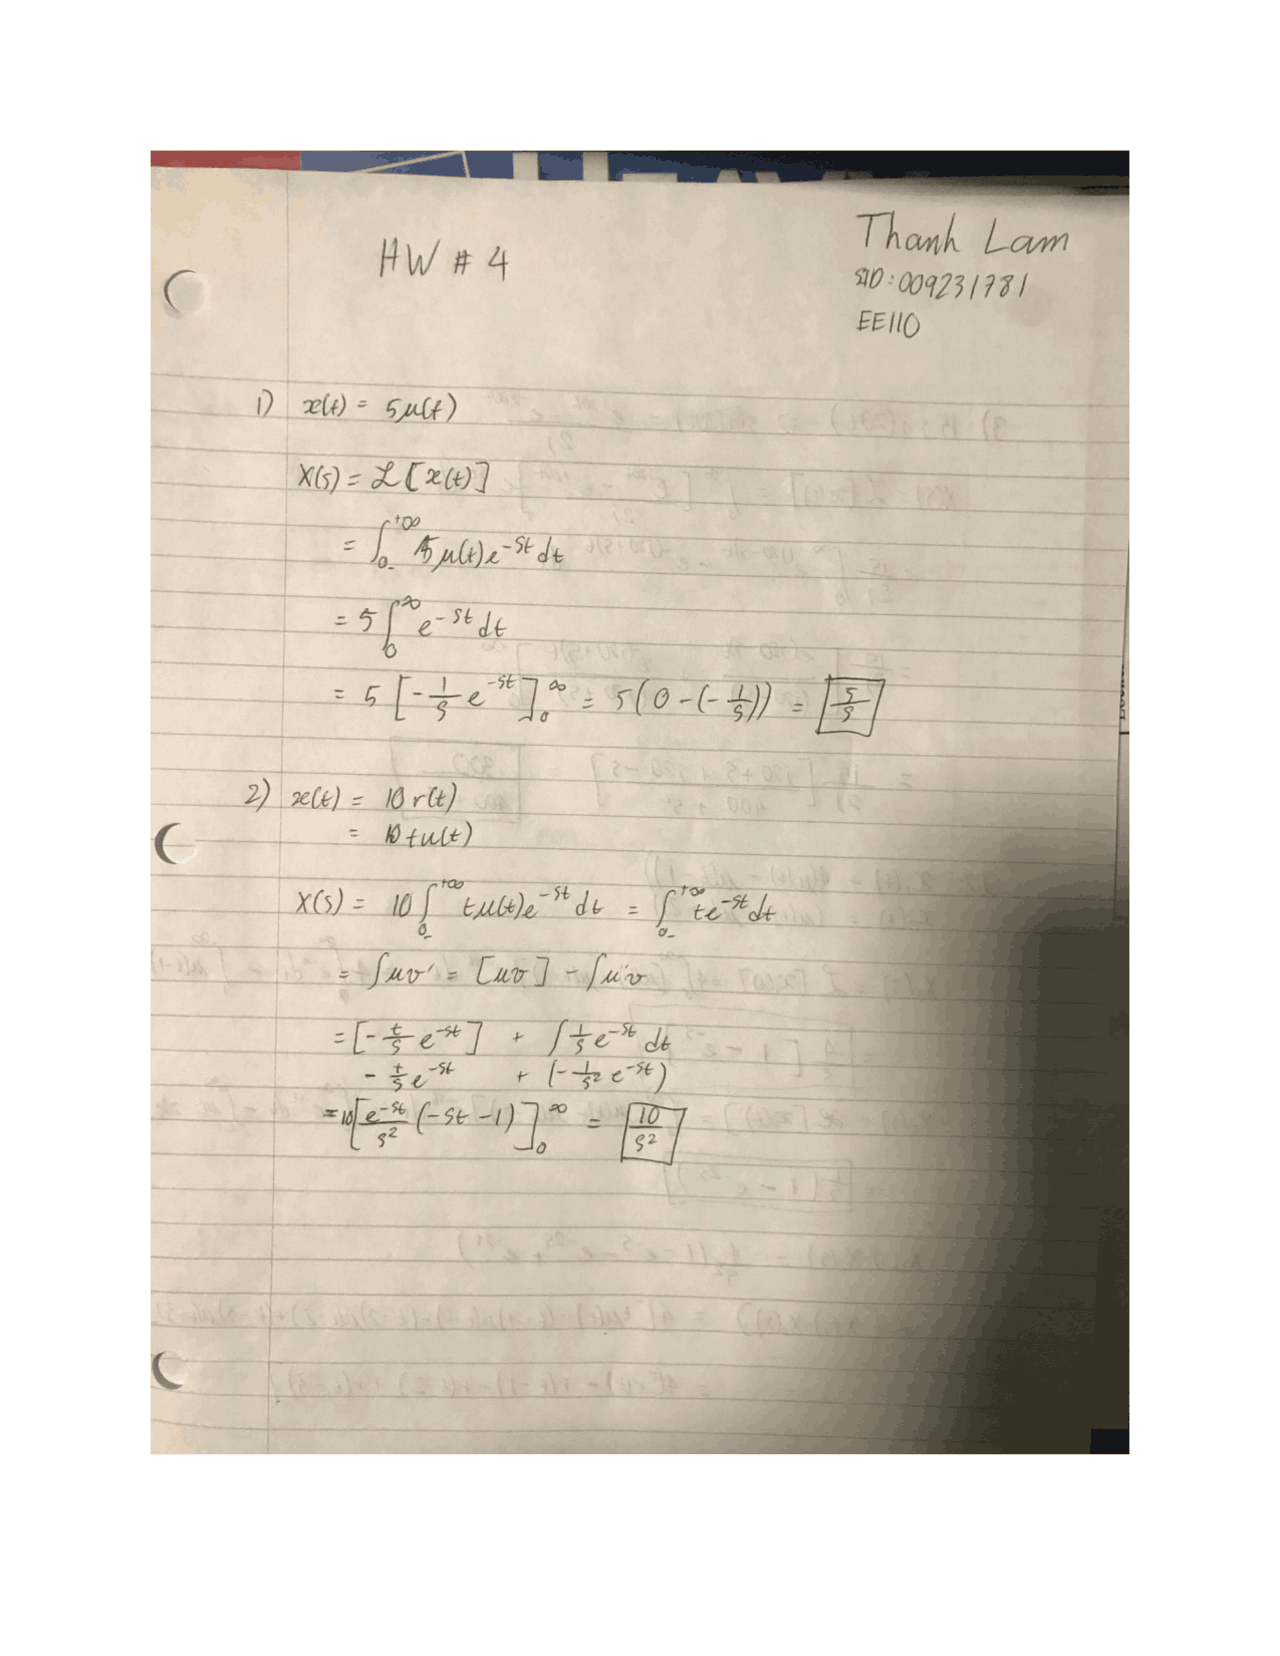 HW # 4
Thanh Lam
SID: 009231781
EE110
1) x(t) = 5μ(t)
X(s) = ℒ[x(t)]
= ∫₀₋^+∞ 5μ(t)e^-st dt
= 5 ∫₀^∞ e^-st dt
= 5 [-1/s e^-st]₀^∞ = 5(0-(-1/s)) = 5/s
2) x(t) = 10 r(t)
= 10 t u(t)
X(s) = 10 ∫₀₋^+∞ tμ(t)e^-st dt = ∫₀₋^+∞ te^-st dt
= ∫uv' = [uv] - ∫u'v
= [-t/s e^-st] + ∫ 1/s e^-st dt
- t/s e^-st + (-1/s² e^-st)
= 10[e^-st/s² (-st -1)]₀^∞ = 10/s²